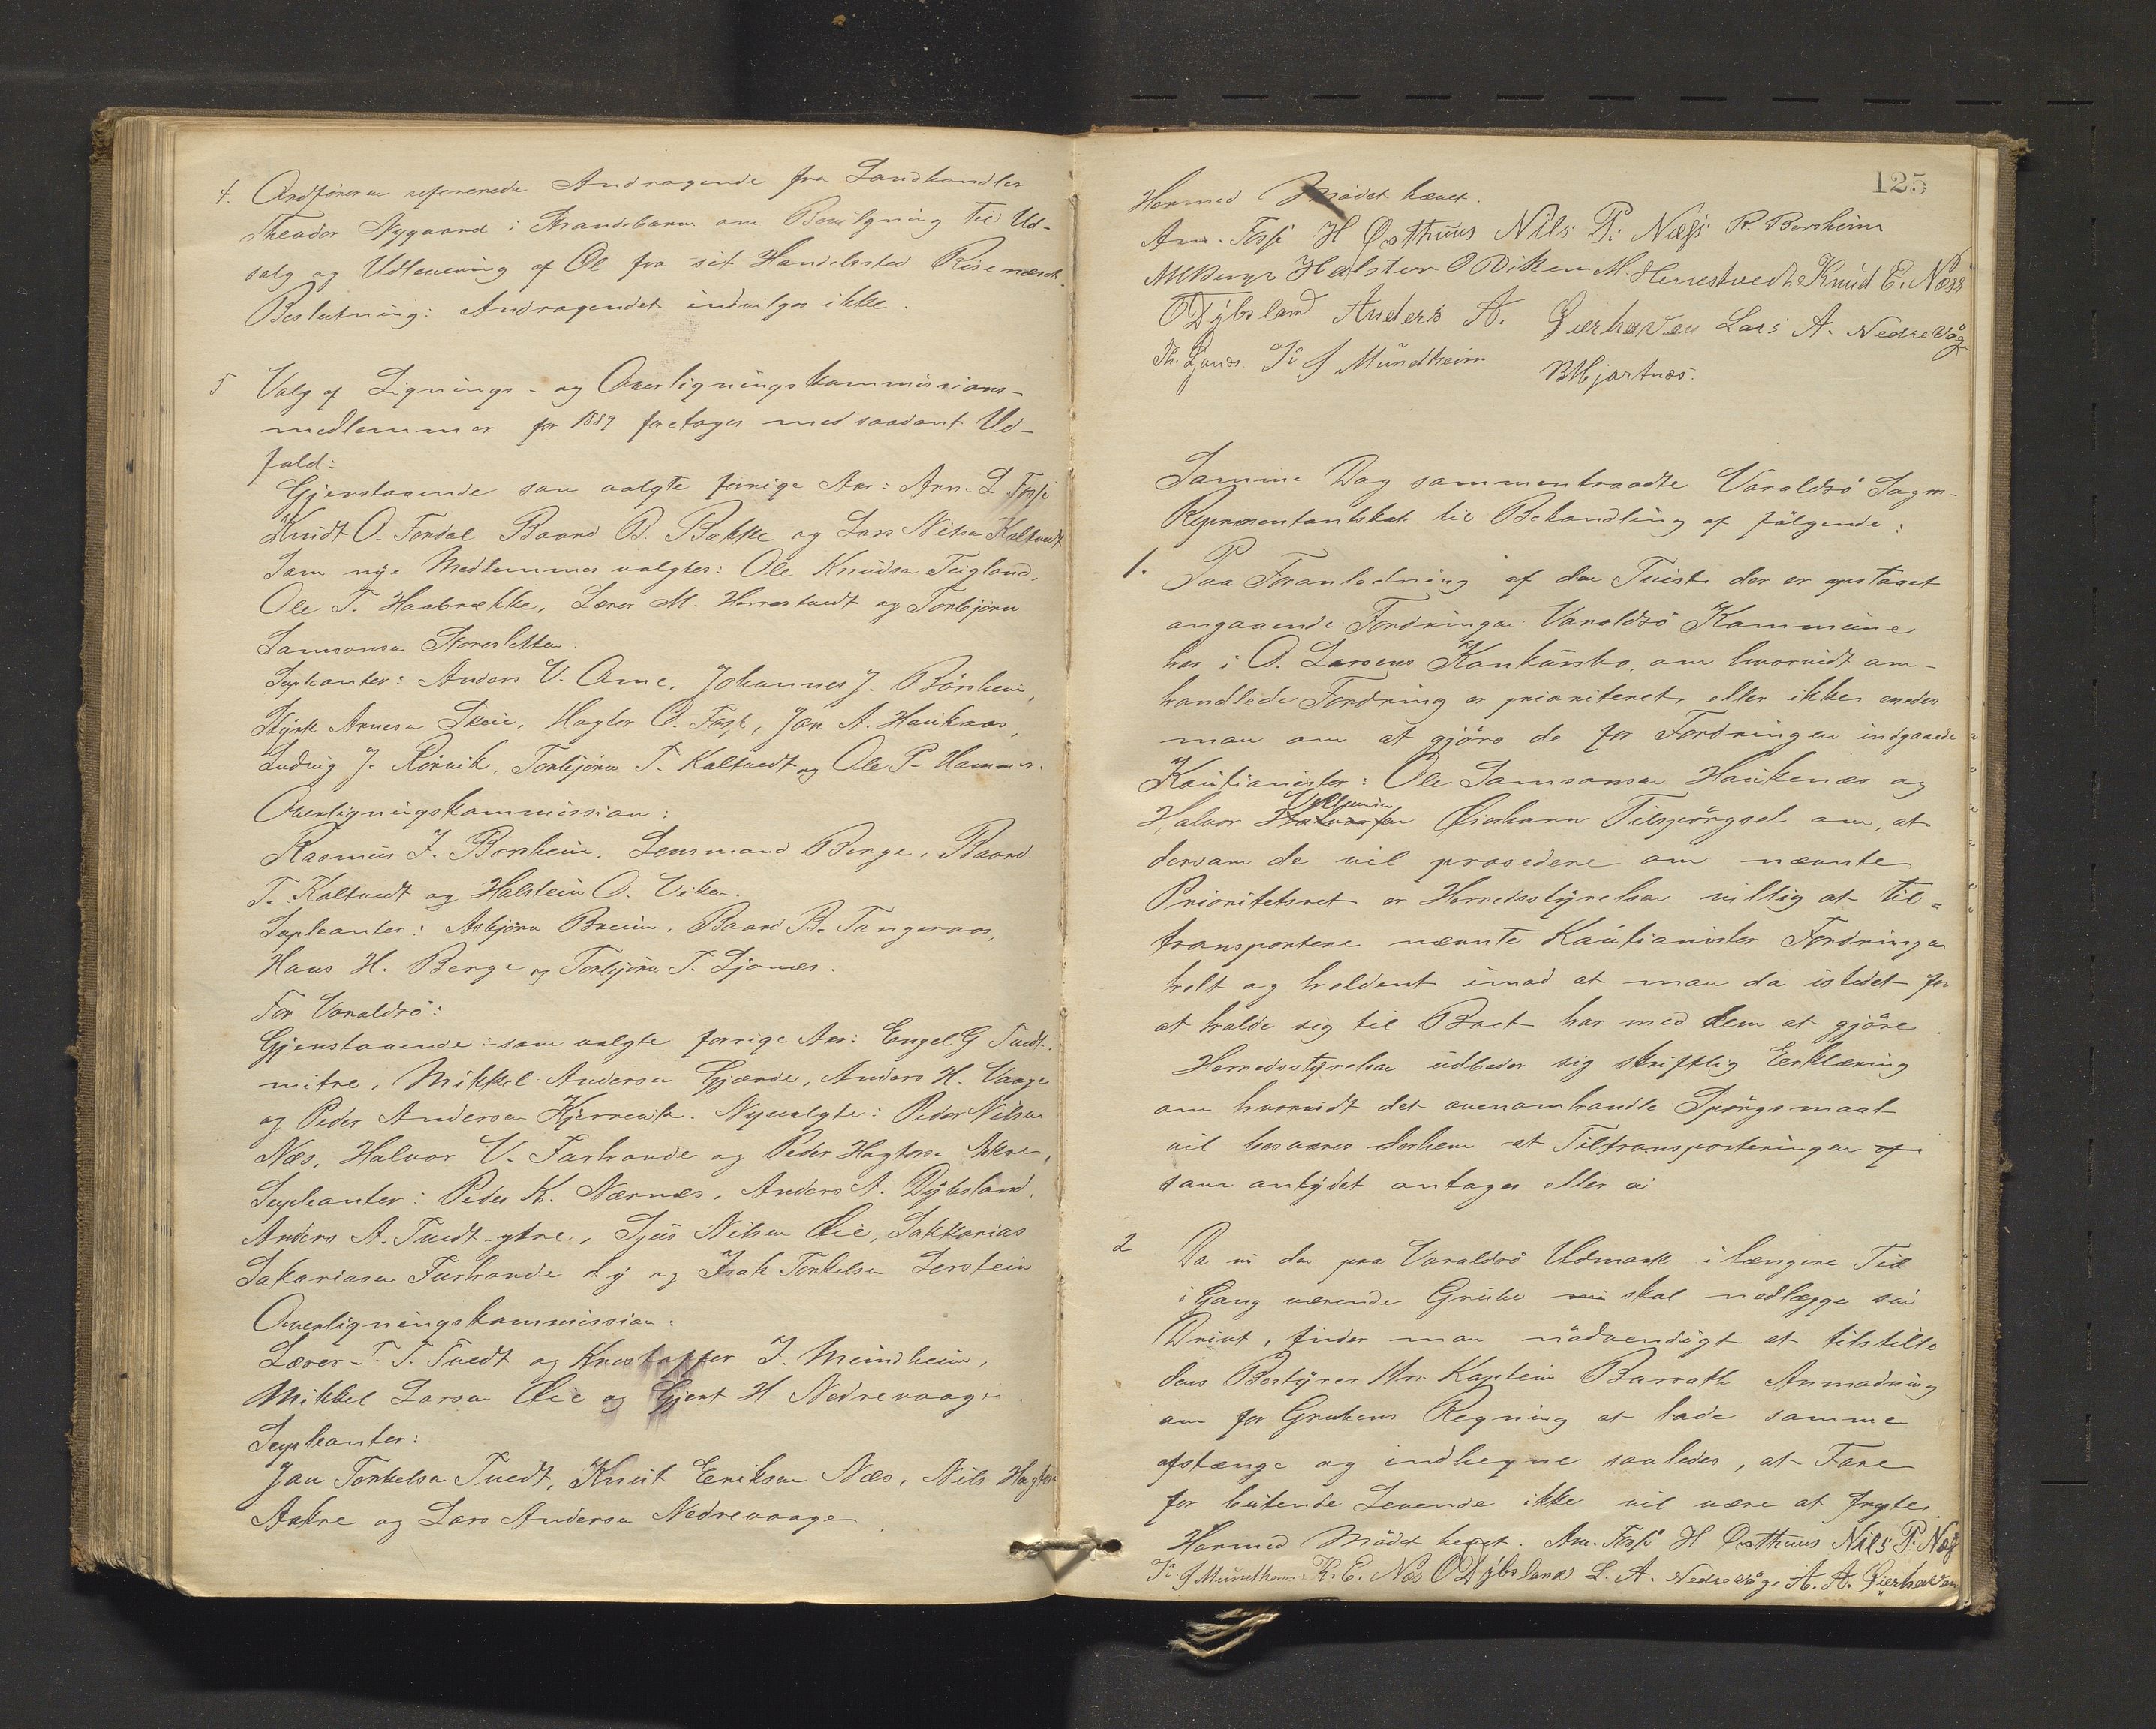 4. Ordføreren refererede Andragende fra Landhandler
Theodor Nygaard i Strandebarm om Bevilgning til Ud-
salg og Udlevering af Øl fra sit Handelssted Risenæset.
Beslutning: Andragendet indvilges ikke.
5 Valg af Lignings- og Overligningskommissions-
medlemmer for 1889 foretages med saadant Ud-
fald:
Gjenstaaende som valgte forrige Aar: Arne L Fosse
Knudt O. Tordal Baard B. Bakke og Lars Nilsen Kaltvedt
Som nye Medlemmer valgtes: Ole Knudsen Teigland,
Ole T. Haabrække, Lærer M. Herrestvedt og Torbjørn
Samsonsen Storesletten.
Supleanter: Anders V. Ome, Johannes J. Børsheim,
Styrk Arnesen Skeie, Hagtor O. Fosse, Jon A. Haukaas,
Ludvig J. Rørvik, Torbjørn T. Kaltvedt og Ole P. Hammer.
Overligningskommission:
Rasmus J. Borsheim, Lensmand Berge, Baard
T. Kaltvedt og Halstein O. Viken.
Supleanter: Asbjørn Breim, Baard B. Tangeraas,
Hans H. Berge og Torbjørn T. Ljones.
For Varaldsø:
Gjenstaaende som valgte forrige Aar: Engel G Tvedt-
mitre, Mikkel Andersen Gjærde, Anders H. Vaage
og Peder Andersen Kjerrevik. Nyvalgte: Peder Nilsen
Næs, Halvor V. Farhande og Peder Hagtorsen Akre,
Supleanter: Peder K. Nærnæs, Anders A. Dybsland,
Anders A. Tvedt-ytre, Sjus Nilsen Øie, Sakkarias
Sakariasen Furhande d.y og Isak Torkelsen Lerstein
Overligningskommission:
Lærer T. T. Tvedt og Kristoffer J. Mundheim,
Mikkel Larsen Øie og Gjert H. Nedrevaage.
Supleanter:
Jan Torkelsen Tvedt, Knut Eriksen Næs, Nils Hagtorsen
Aakre og Lars Andersen Nedrevaage.
125
Hermed Mødet hævet.
Arn. Fosse H Østhuus Nils P. Næss R. Borsheim
M Berge Halsten O Viken M. Herrestvedt Knud E. Næss
O Dybsland Anders A. Øierhavn Lars A. Nedrevåge
Th. Ljones K. J Mundheim B Hjartnæs.
Samme Dag sammentraadte Varaldsø Sogns
Repræsentantskab til Behandling af følgende:
1. Paa Foranledning af den Tvist der er opstaaet
angaaende Fordringen Varaldsø Kommune
har i O. Larsens Konkursbo, om hvorvidt om-
handlede Fordring er prioriteret eller ikke enedes
man om at gjøre de for Fordringen indgaaede
Kautionister: Ole Samsonsen Haukenæs og
Halvor Halvorsen Øierhavn Tilspørgsel om, at
dersom de vil prosedere om nævnte
Prioritetsret er Herredsstyrelsen villig at til-
transportere nævnte Kautionister Fordringen
helt og holdent imod at man da istedet for
at holde sig til Boet har med dem at gjøre.
Herredsstyrelsen udbeder sig skriftlig Erklæring
om hvorvidt det ovenomhandle Spørgsmaal
vil besvares derhen at Tiltransporteringen af
som antydet antages eller ei
2 Da nu den paa Varaldsø Udmark i længere Tid
i Gang værende Grube skal nedlægge sin
Drivt, finder man nødvendigt at tilstille
dens Bestyrer Hr. Kaptein Barrath Anmodning
om for Grubens Regning at lade samme
afstænge og indhegne saaledes, at Fare
for beitende Levende ikke vil være at frygte.
Hermed Mødet hevet. Arn. Fosse H Østhuus Nils P. Næss
K. J Mundheim K. E. Næs O Dybsland L. A. Nedrevåge A. A. Øierhavn